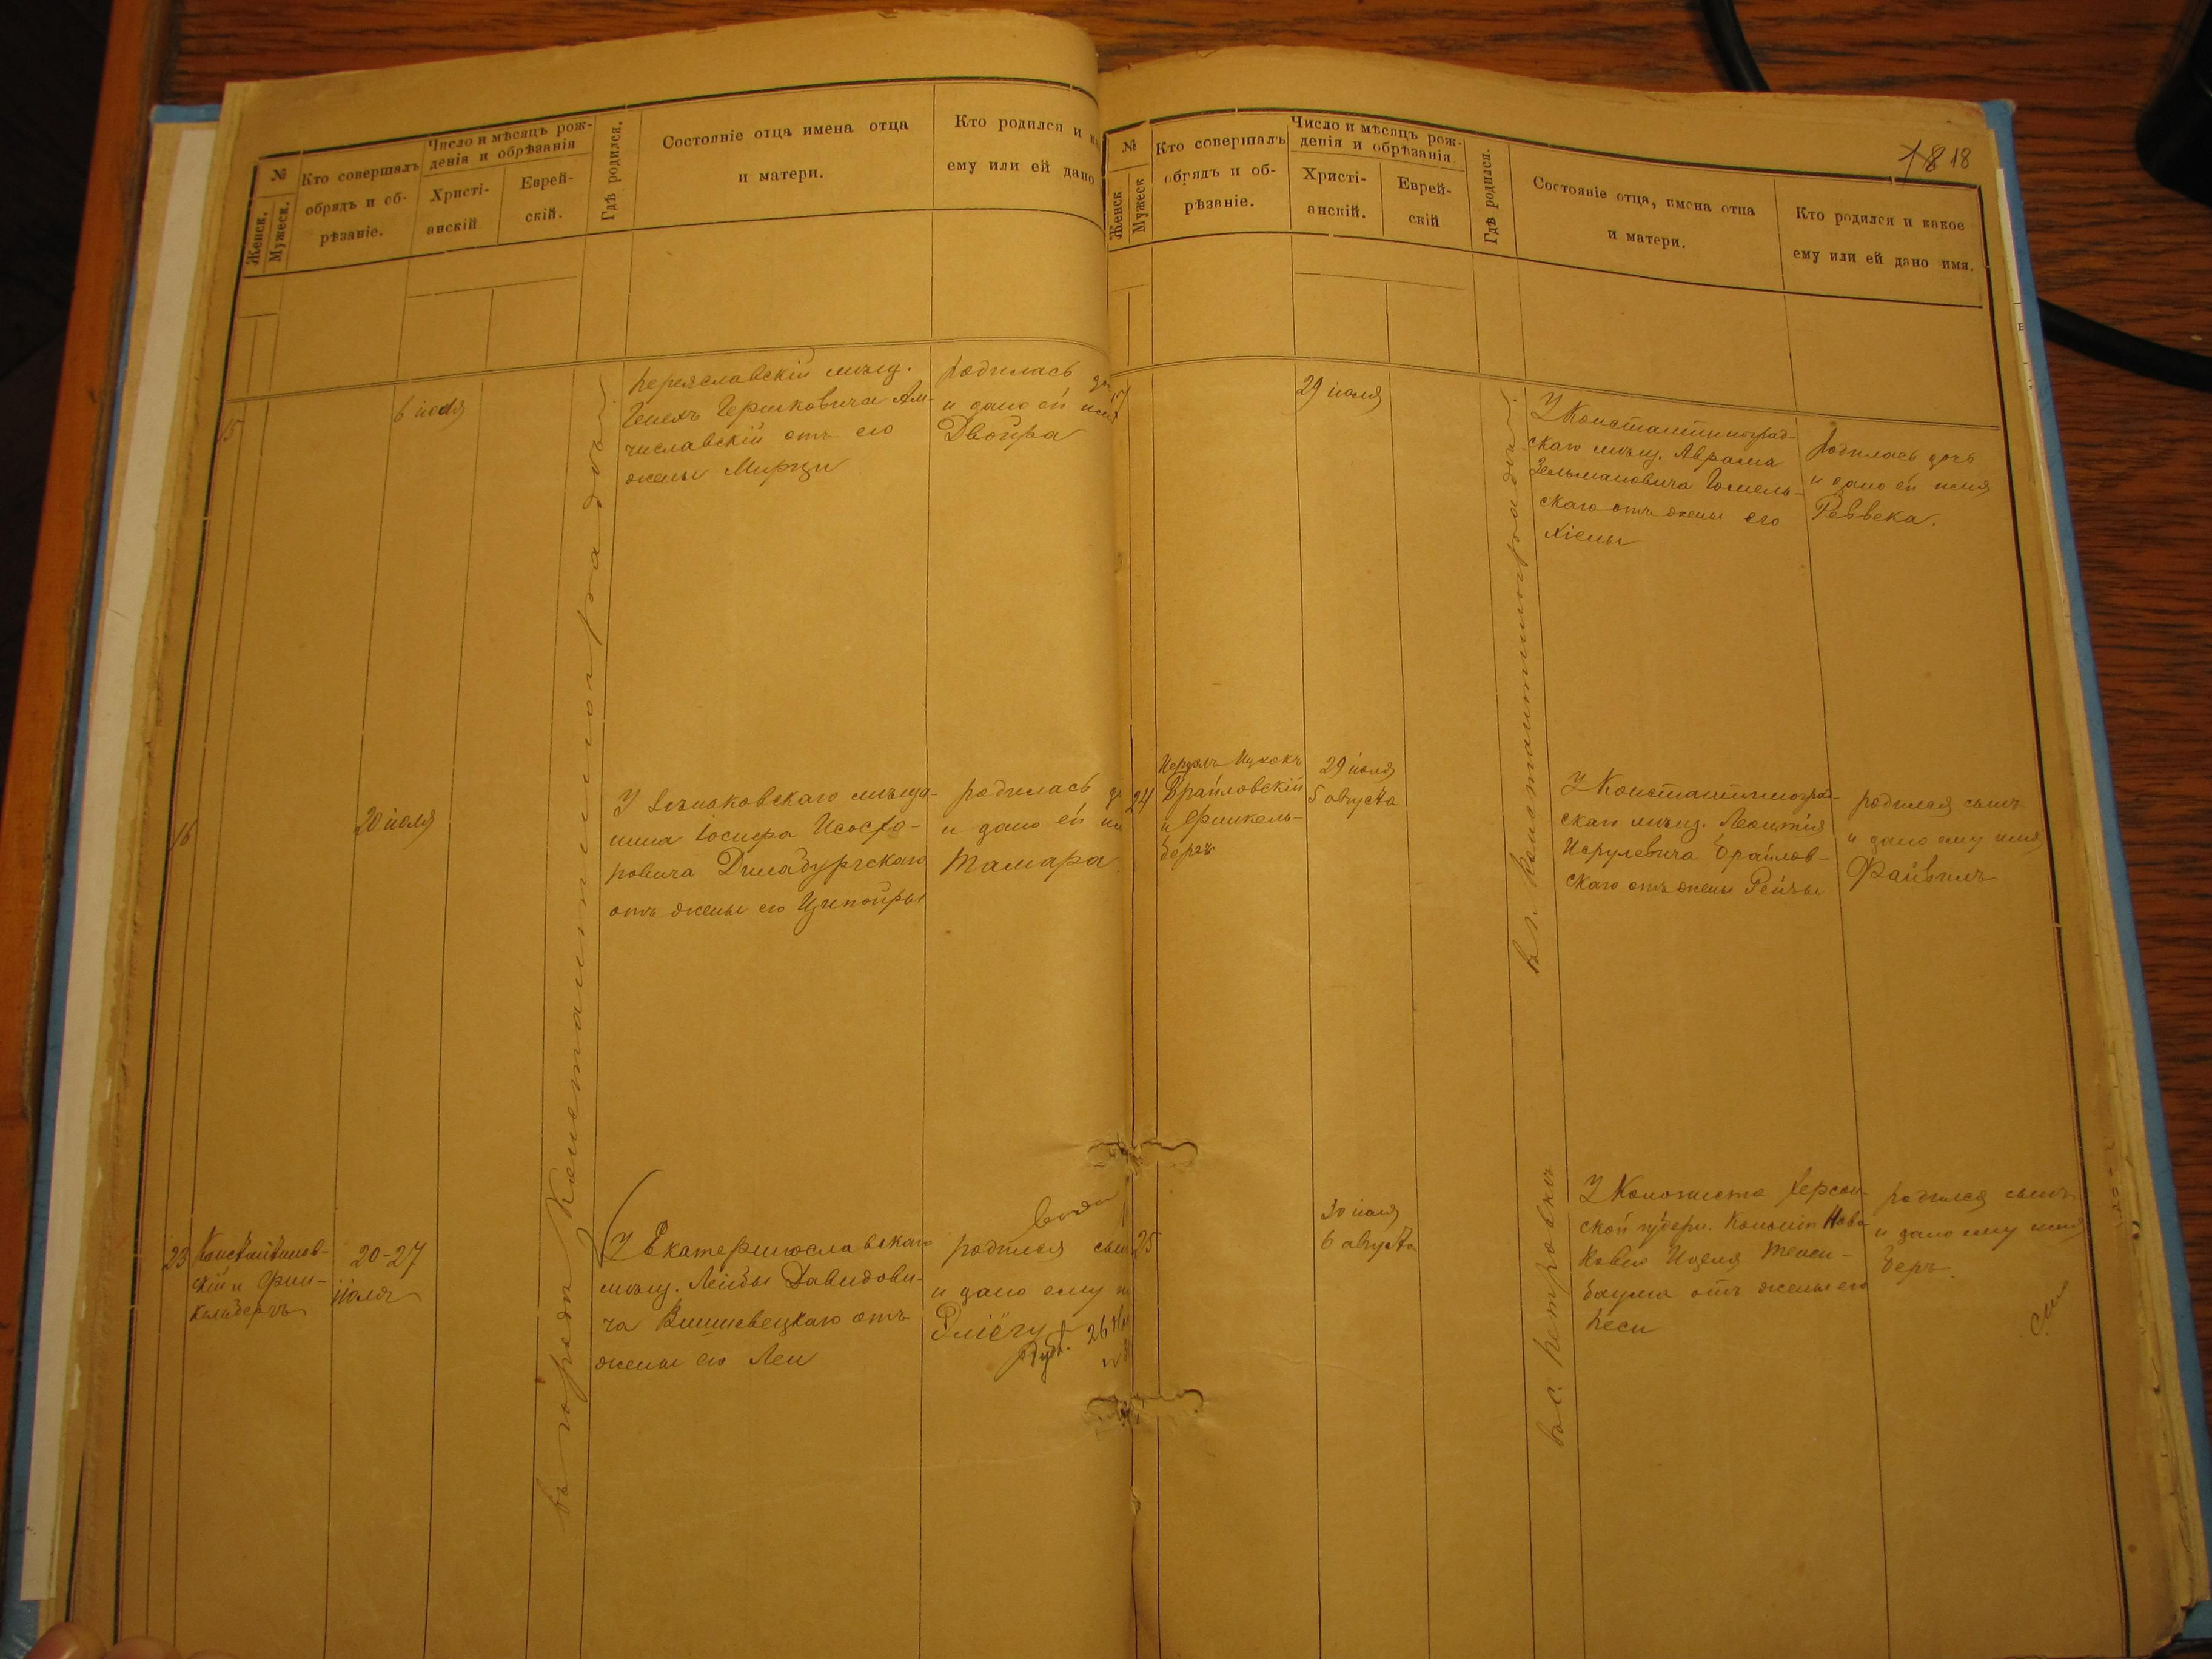 №
Женск.
Мужеск.
Кто совершалъ
обрядъ и об-
рѣзаніе.
Число и мѣсяцъ рож-
денія и обрѣзанія
Христі-
анскій
Еврей-
скій.
Гдѣ родился.
Состояніе отца имена отца
и матери.
Кто родился и
ему или ей дано
15
6 июля
въ городѣ Константиноградѣ
Переяславскій мѣщ.
Гершковича
числавскій отъ его
жены Мирки
родилась
и дано ей имя
Двойра
16
20 июля
мѣща-
нина Іосифа
ровича Динабургскаго
отъ жены его Ципойры
родилась
и дано ей
Тамара
23
Константинов-
скій и Фин-
кельбергъ
20-27
іюля
У Екатеринославскаго
мѣщ. Лейбы Давидови-
ча Вишневецкаго отъ
жены его Леи
родился сынъ
и дано ему
26
18 18
№
Женск
Мужеск
Кто совершалъ
обрядъ и об-
рѣзаніе.
Число и мѣсяцъ рож-
денія и обрѣзанія
Христі-
анскій.
Еврей-
скій
Гдѣ родился.
Состояніе отца, имена отца
и матери.
Кто родился и какое
ему или ей дано имя.
17
29 июля
въ г. Константиноградѣ
У Константиноград-
скаго мѣщ. Аврама
Зельмановича Гомель-
скаго отъ жены его
Хіены
родилась дочь
и дано ей имя
Реввека.
24
Ицхокъ
Браиловскій
и Финкель-
бергъ
29 июля
5 августа
У Константиноград-
скаго мѣщ. Леонтія
Исрулевича Браилов-
скаго отъ жены Рейзы
родился сынъ
и дано ему имя
Файвилъ
25
30 июля
6 августа
въ с. Петровкѣ
У Колониста Херсон-
ской губерн. Колоніи Ново
Ковно Ицеля Тенен-
баума отъ жены его
Песи
родился сынъ
и дано ему имя
Беръ.